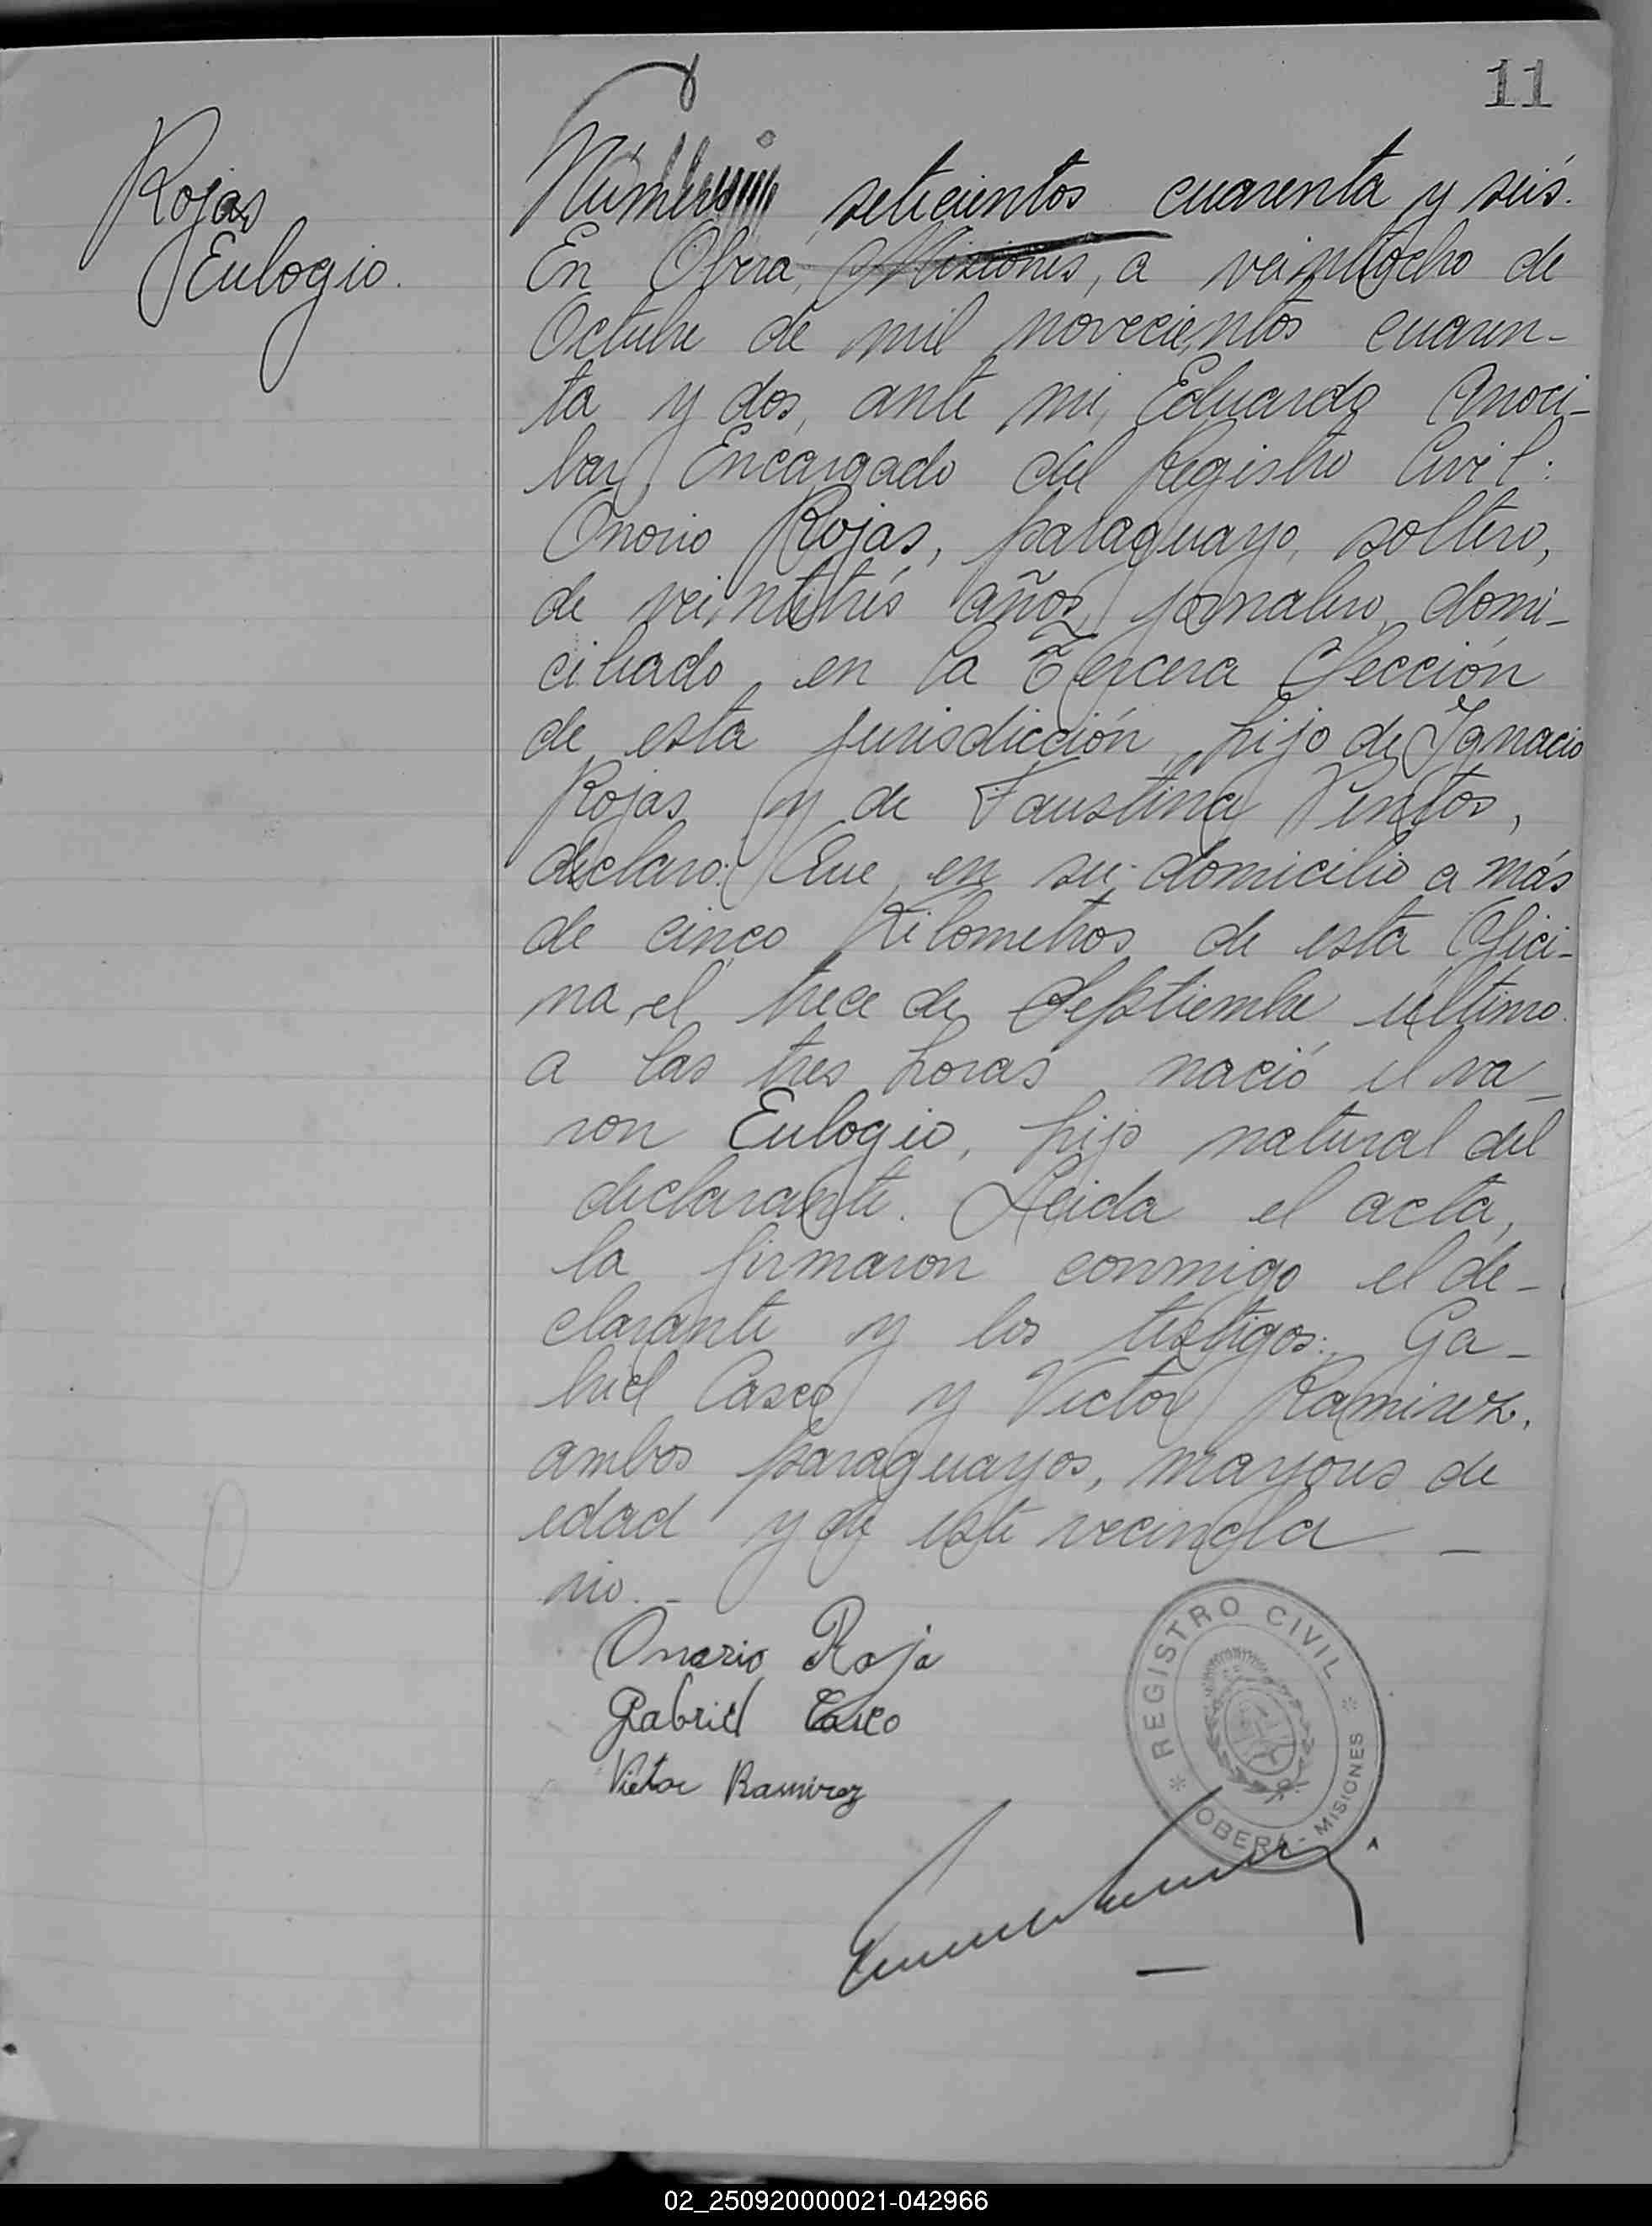 11
Rojas
Eulogio.
Número seticientos cuarenta y seis.
En Obera, Misiones, a veintiocho de
Octubre de mil novecientos cuaren-
ta y dos, ante mi, Eduardo Anoci-
bar Encargado del Registro Civil:
Onorio Rojas, paraguayo, soltero,
de veintitrés años, jornalero, domi-
ciliado en la Tercera Sección
de esta jurisdicción, hijo de Ignacio
Rojas y de Faustina Pintos,
declaro: Que, en su domicilio a más
de cinco Kilometros de esta Ofici-
na, el trece de Septiembre último
a las tres horas nació el va-
ron Eulogio, hijo natural del
declarante. Leida el acta,
la firmaron conmigo el de-
clarante y los testigos: Ga-
briel Casco y Victor Ramirez,
ambos paraguayos, mayores de
edad y de este vecinda-
rio.-
Onorio Roja
Gabriel Casco
Victor Ramirez
REGISTRO CIVIL
OBERÁ - MISIONES
02_250920000021-042966